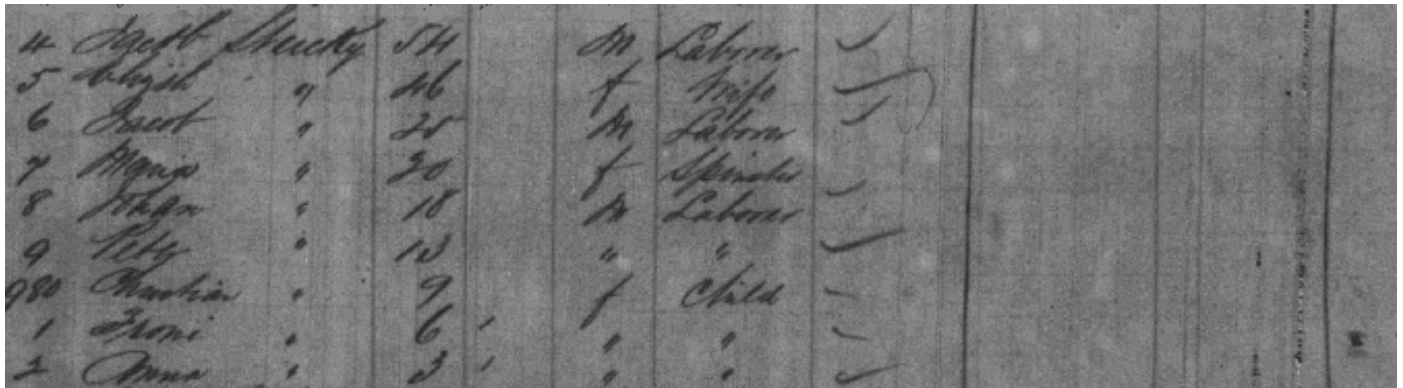 4 Jacob Stucky 54 M Laborer
5 " 46 f Wife
6 Jacob " 25 M Laborer
7 Maria " 20 f Spinster
8 Johan " 18 M Laborer
9 Peter " 13 " "
980 Christian " 9 f Child
1 Froni " 6 " "
2 Anna " 3 " "